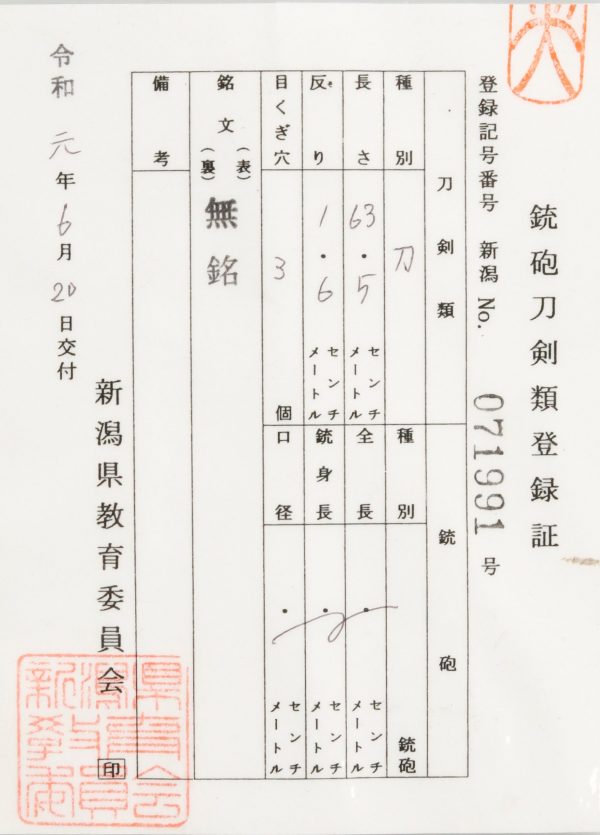 銃砲刀剣類登録証
登録記号番号 新潟 No. 071991 号
刀剣類
種別 刀
長さ 63.5 センチメートル
反り(そ) 1.6 センチメートル
目くぎ穴 3 個
銘文(表)(裏) 無銘
備考
銃砲
種別 銃砲
全長 . センチメートル
銃身長 . センチメートル
口径 . センチメートル
令和 元年 6月 20日交付
新潟県教育委員会 印